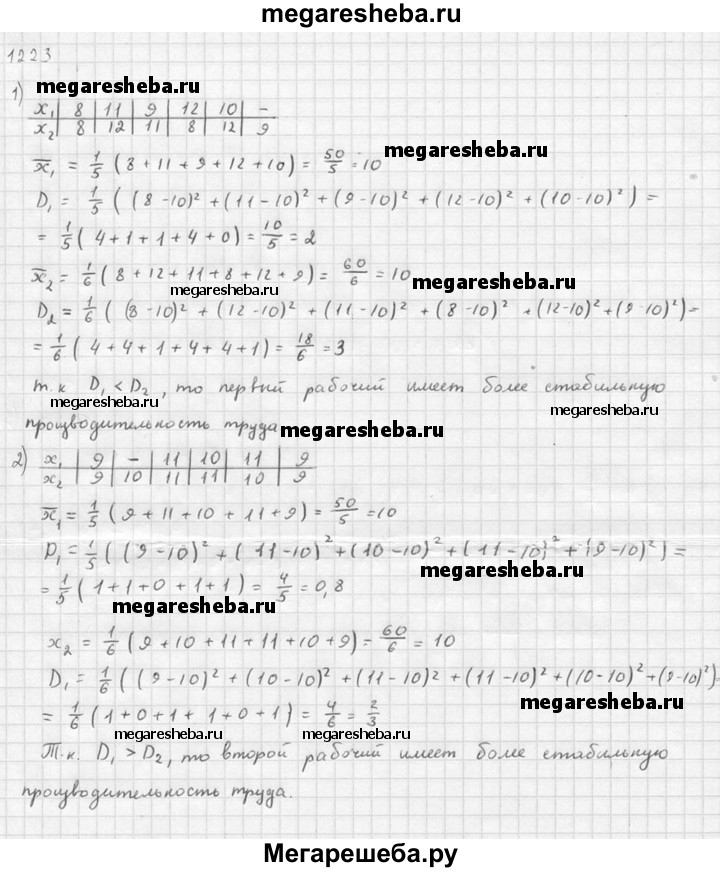 megaresheba.ru
1223
megaresheba.ru
1) x₁ | 8 | 11 | 9 | 12 | 10 | −
x₂ | 8 | 12 | 11 | 8 | 12 | 9
megaresheba.ru
x̅₁ = 1/5 (8 + 11 + 9 + 12 + 10) = 50/5 = 10
D₁ = 1/5 ((8 - 10)² + (11 - 10)² + (9 - 10)² + (12 - 10)² + (10 - 10)²) =
= 1/5 (4 + 1 + 1 + 4 + 0) = 10/5 = 2
x̅₂ = 1/6 (8 + 12 + 11 + 8 + 12 + 9) = 60/6 = 10
megaresheba.ru megaresheba.ru
D₂ = 1/6 ((8 - 10)² + (12 - 10)² + (11 - 10)² + (8 - 10)² + (12 - 10)² + (9 - 10)²) =
= 1/6 (4 + 4 + 1 + 4 + 4 + 1) = 18/6 = 3
т.к D₁ < D₂, то первый рабочий имеет более стабильную
megaresheba.ru megaresheba.ru
производительность труда
megaresheba.ru
2) x₁ | 9 | − | 11 | 10 | 11 | 9
x₂ | 9 | 10 | 11 | 11 | 10 | 9
x̅₁ = 1/5 (9 + 11 + 10 + 11 + 9) = 50/5 = 10
D₁ = 1/5 ((9 - 10)² + (11 - 10)² + (10 - 10)² + (11 - 10)² + (9 - 10)²) =
megaresheba.ru
= 1/5 (1 + 1 + 0 + 1 + 1) = 4/5 = 0,8
megaresheba.ru
x₂ = 1/6 (9 + 10 + 11 + 11 + 10 + 9) = 60/6 = 10
D₁ = 1/6 ((9 - 10)² + (10 - 10)² + (11 - 10)² + (11 - 10)² + (10 - 10)² + (9 - 10)²)
megaresheba.ru
= 1/6 (1 + 0 + 1 + 1 + 0 + 1) = 4/6 = 2/3
megaresheba.ru megaresheba.ru
Т.к. D₁ > D₂, то второй рабочий имеет более стабильную
производительность труда.
Мегарешеба.ру